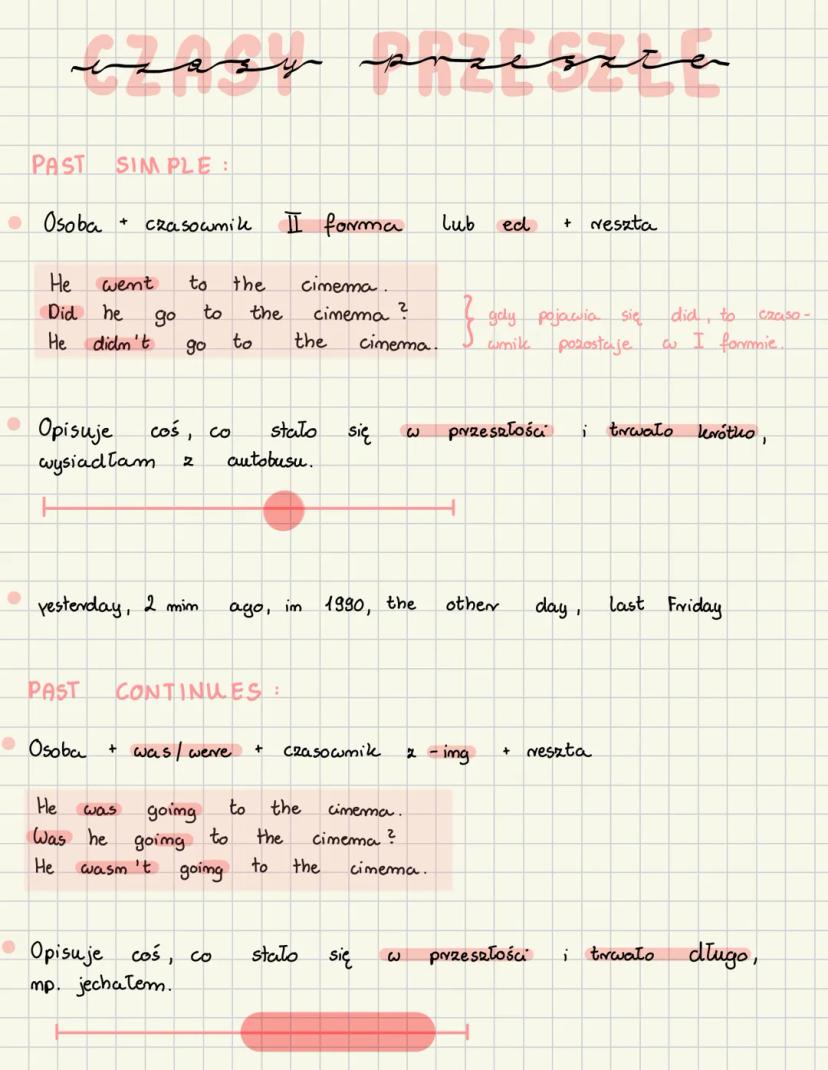 CZASY PRZESZŁE
czasy przeszłe
PAST SIMPLE:
Osoba + czasownik II forma lub ed + reszta
He went to the cinema.
Did he go to the cinema?
He didn't go to the cinema.
} gdy pojawia się did, to czaso-
wnik pozostaje w I formie.
Opisuje coś, co stało się w przeszłości i trwało krótko,
wysiadłam z autobusu.
yesterday, 2 min ago, in 1990, the other day, last Friday
PAST CONTINUES:
Osoba + was/were + czasownik z -ing + reszta
He was going to the cinema.
Was he going to the cinema?
He wasn't going to the cinema.
Opisuje coś, co stało się w przeszłości i trwało długo,
np. jechałem.